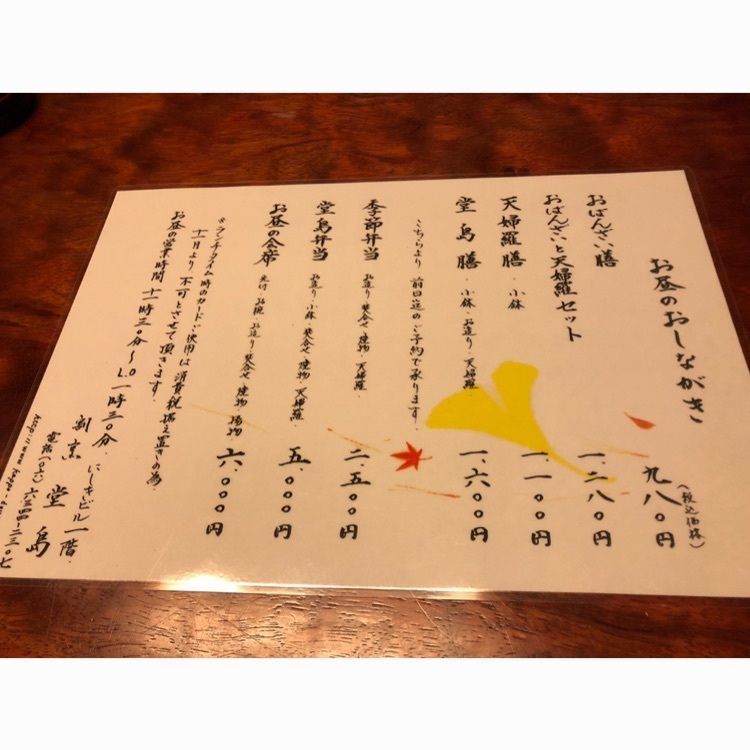 お昼のおしながき
(税込価格)
おばんざい膳 九八〇円
おばんざいと天婦羅セット 一.二八〇円
天婦羅膳・小鉢 一.一〇〇円
堂島膳・小鉢・お造り・天婦羅・ 一.六〇〇円
こちらより前日迄のご予約で承ります。
季節弁当 お造り・焚合せ・焼物・天婦羅・ 二.五〇〇円
堂島弁当 お造り・小鉢・焚合せ・焼物・天婦羅・ 五.〇〇〇円
お昼の会席 先付・お椀・お造り・焚合せ・焼物・揚物 六.〇〇〇円
※ランチタイム時のカードご使用は消費税据え置きの為・
十一月より不可とさせて頂きます。
お昼の営業時間 十一時三〇分〜L.O 一時三〇分・
にしきビル一階・
割烹 堂島
電話(〇六)六三四四-二三〇七
http://www.kappo-